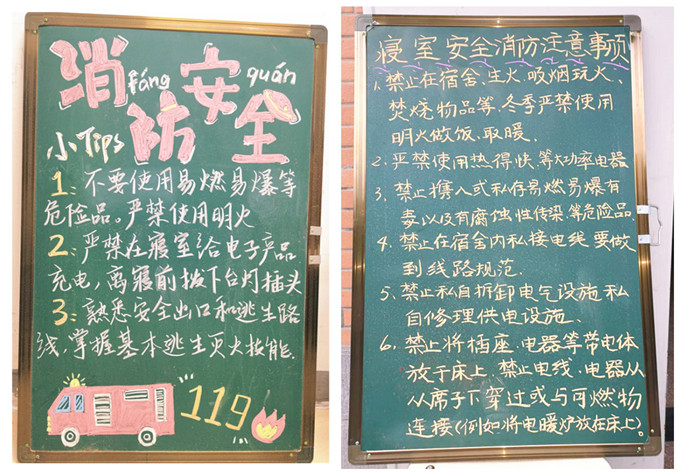 消防安全
fáng quán
小Tips
1: 不要使用易燃易爆等
危险品。严禁使用明火
2: 严禁在寝室给电子产品
充电,离寝前拨下台灯插头
3: 熟悉安全出口和逃生路
线,掌握基本逃生灭火技能.
119
寝室安全消防注意事项
1、禁止在宿舍生火吸烟玩火、
焚烧物品等.冬季严禁使用
明火做饭.取暖.
2、严禁使用热得快等大功率电器
3、禁止携入或私存易燃易爆有
毒以及有腐蚀性传染等危险品
4、禁止在宿舍内私接电线要做
到线路规范.
5、禁止私自拆卸电气设施私
自修理供电设施.
6、禁止将插座.电器等带电体
放于床上.禁止电线.电器从
从席子下穿过或与可燃物
连接(例如将电暖炉放在床上)。